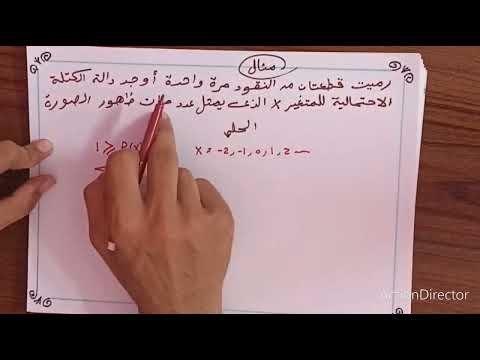 مثال
رميت قطعتان من النقود مرة واحدة أوجد دالة الكتلة
الاحتمالية للمتغير X الذى يمثل عدد مرات ظهور الصورة
الحل
1 ⩾ P(x)
X = -2, -1, 0, 1, 2
ActionDirector